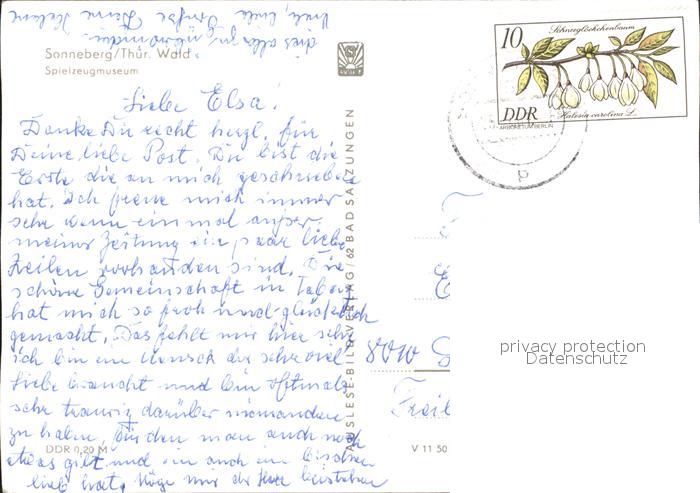 Sonneberg/Thür. Wald
Spielzeugmuseum
Liebe Elsa!
Danke Dir recht herzl. für
Deine liebe Post. Du bist die
Erste die an mich geschrieben
hat. Ich freue mich immer
sehr wenn einmal außer
meiner Zeitung ein paar liebe
Zeilen vorhanden sind. Die
schöne Gemeinschaft in
hat mich so froh und glücklich
gemacht. Das fehlt mir hier sehr
ich bin ein Mensch der sehr viel
Liebe braucht und bin oftmals
sehr traurig darüber niemanden
zu haben, für den man auch noch
etwas gilt und ein auch ein bischen
lieb hat. Möge mir der Herr beistehen
DDR 0,20 M
AUSLESE-BILD-VERLAG / 62 BAD SALZUNGEN
V 11 50
10
Schneeglöckchenbaum
DDR
Halesia carolina L.
ARBORETUM BERLIN
p
privacy protection
Datenschutz